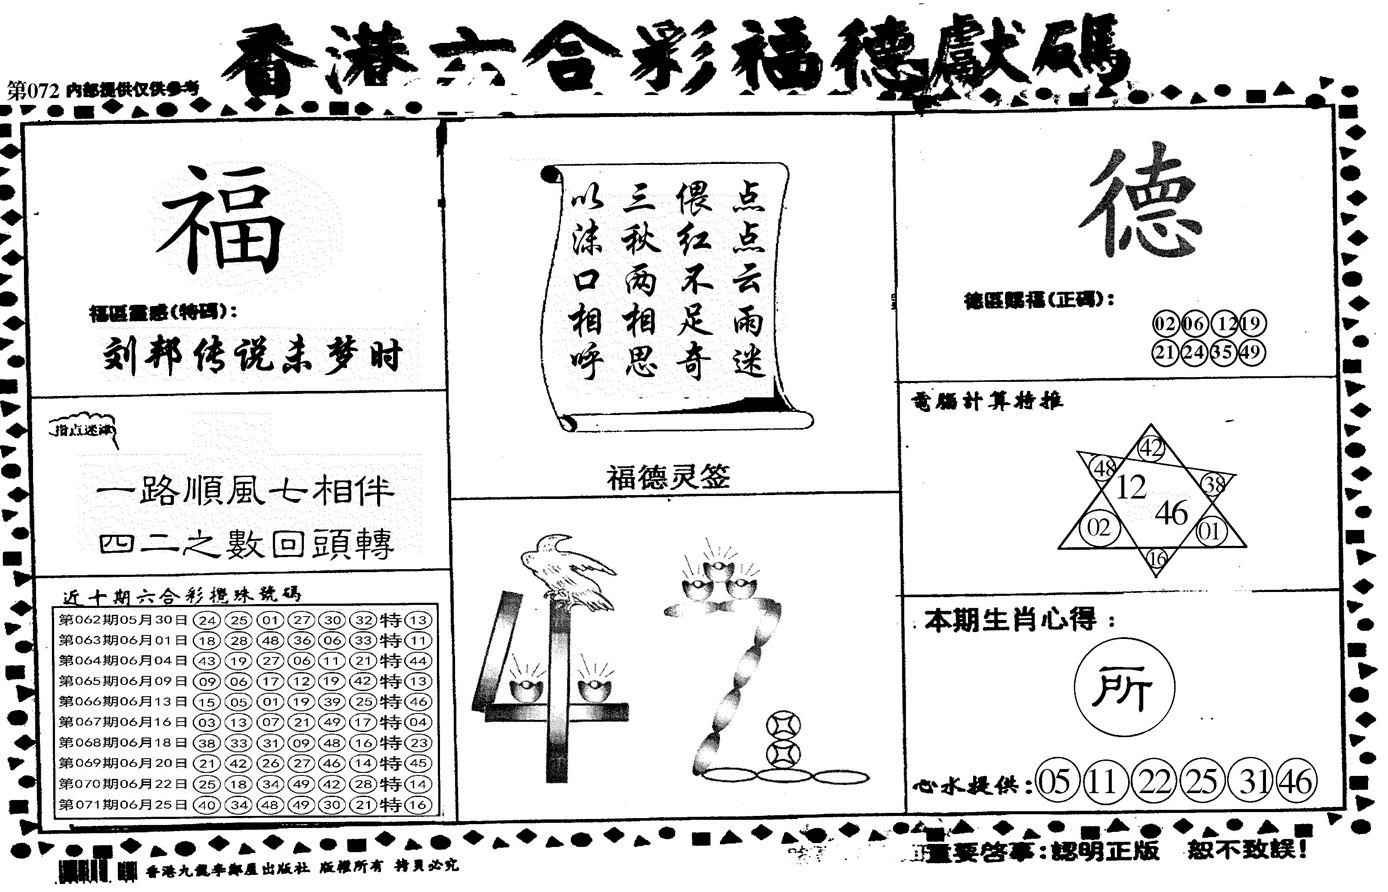 香港六合彩福德獻碼
第072 内部提供仅供参考
福
福區靈感(特碼):
刘邦传说未梦时
指点迷津
一路順風七相伴
四二之數回頭轉
近十期六合彩攪珠號碼
第062期05月30日 24 25 01 27 30 32 特 13
第063期06月01日 18 28 48 36 06 33 特 11
第064期06月04日 43 19 27 06 11 21 特 44
第065期06月09日 09 06 17 12 19 42 特 13
第066期06月13日 15 05 01 19 39 25 特 46
第067期06月16日 03 13 07 21 49 17 特 04
第068期06月18日 38 33 31 09 48 16 特 23
第069期06月20日 21 42 26 27 46 14 特 45
第070期06月22日 25 18 34 49 42 28 特 14
第071期06月25日 40 34 48 49 30 21 特 16
点点云雨迷
偎红不足奇
三秋两相思
以沫口相呼
福德灵签
42
德
德區賜福(正碼):
02 06 12 19
21 24 35 49
電腦計算特推
42
48 38
12
46
02 01
16
本期生肖心得:
所
心水提供:05 11 22 25 31 46
香港九龍李鄭屋出版社 版權所有 拷貝必究
重要啓事:認明正版 恕不致誤!